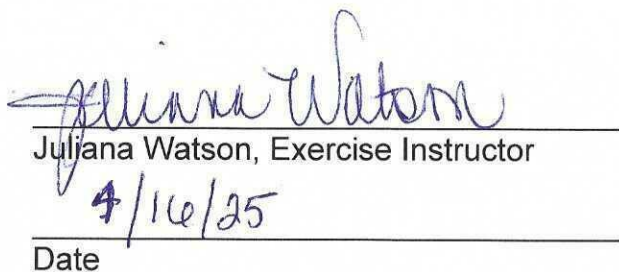 Juliana Watson
Juliana Watson, Exercise Instructor
4/16/25
Date